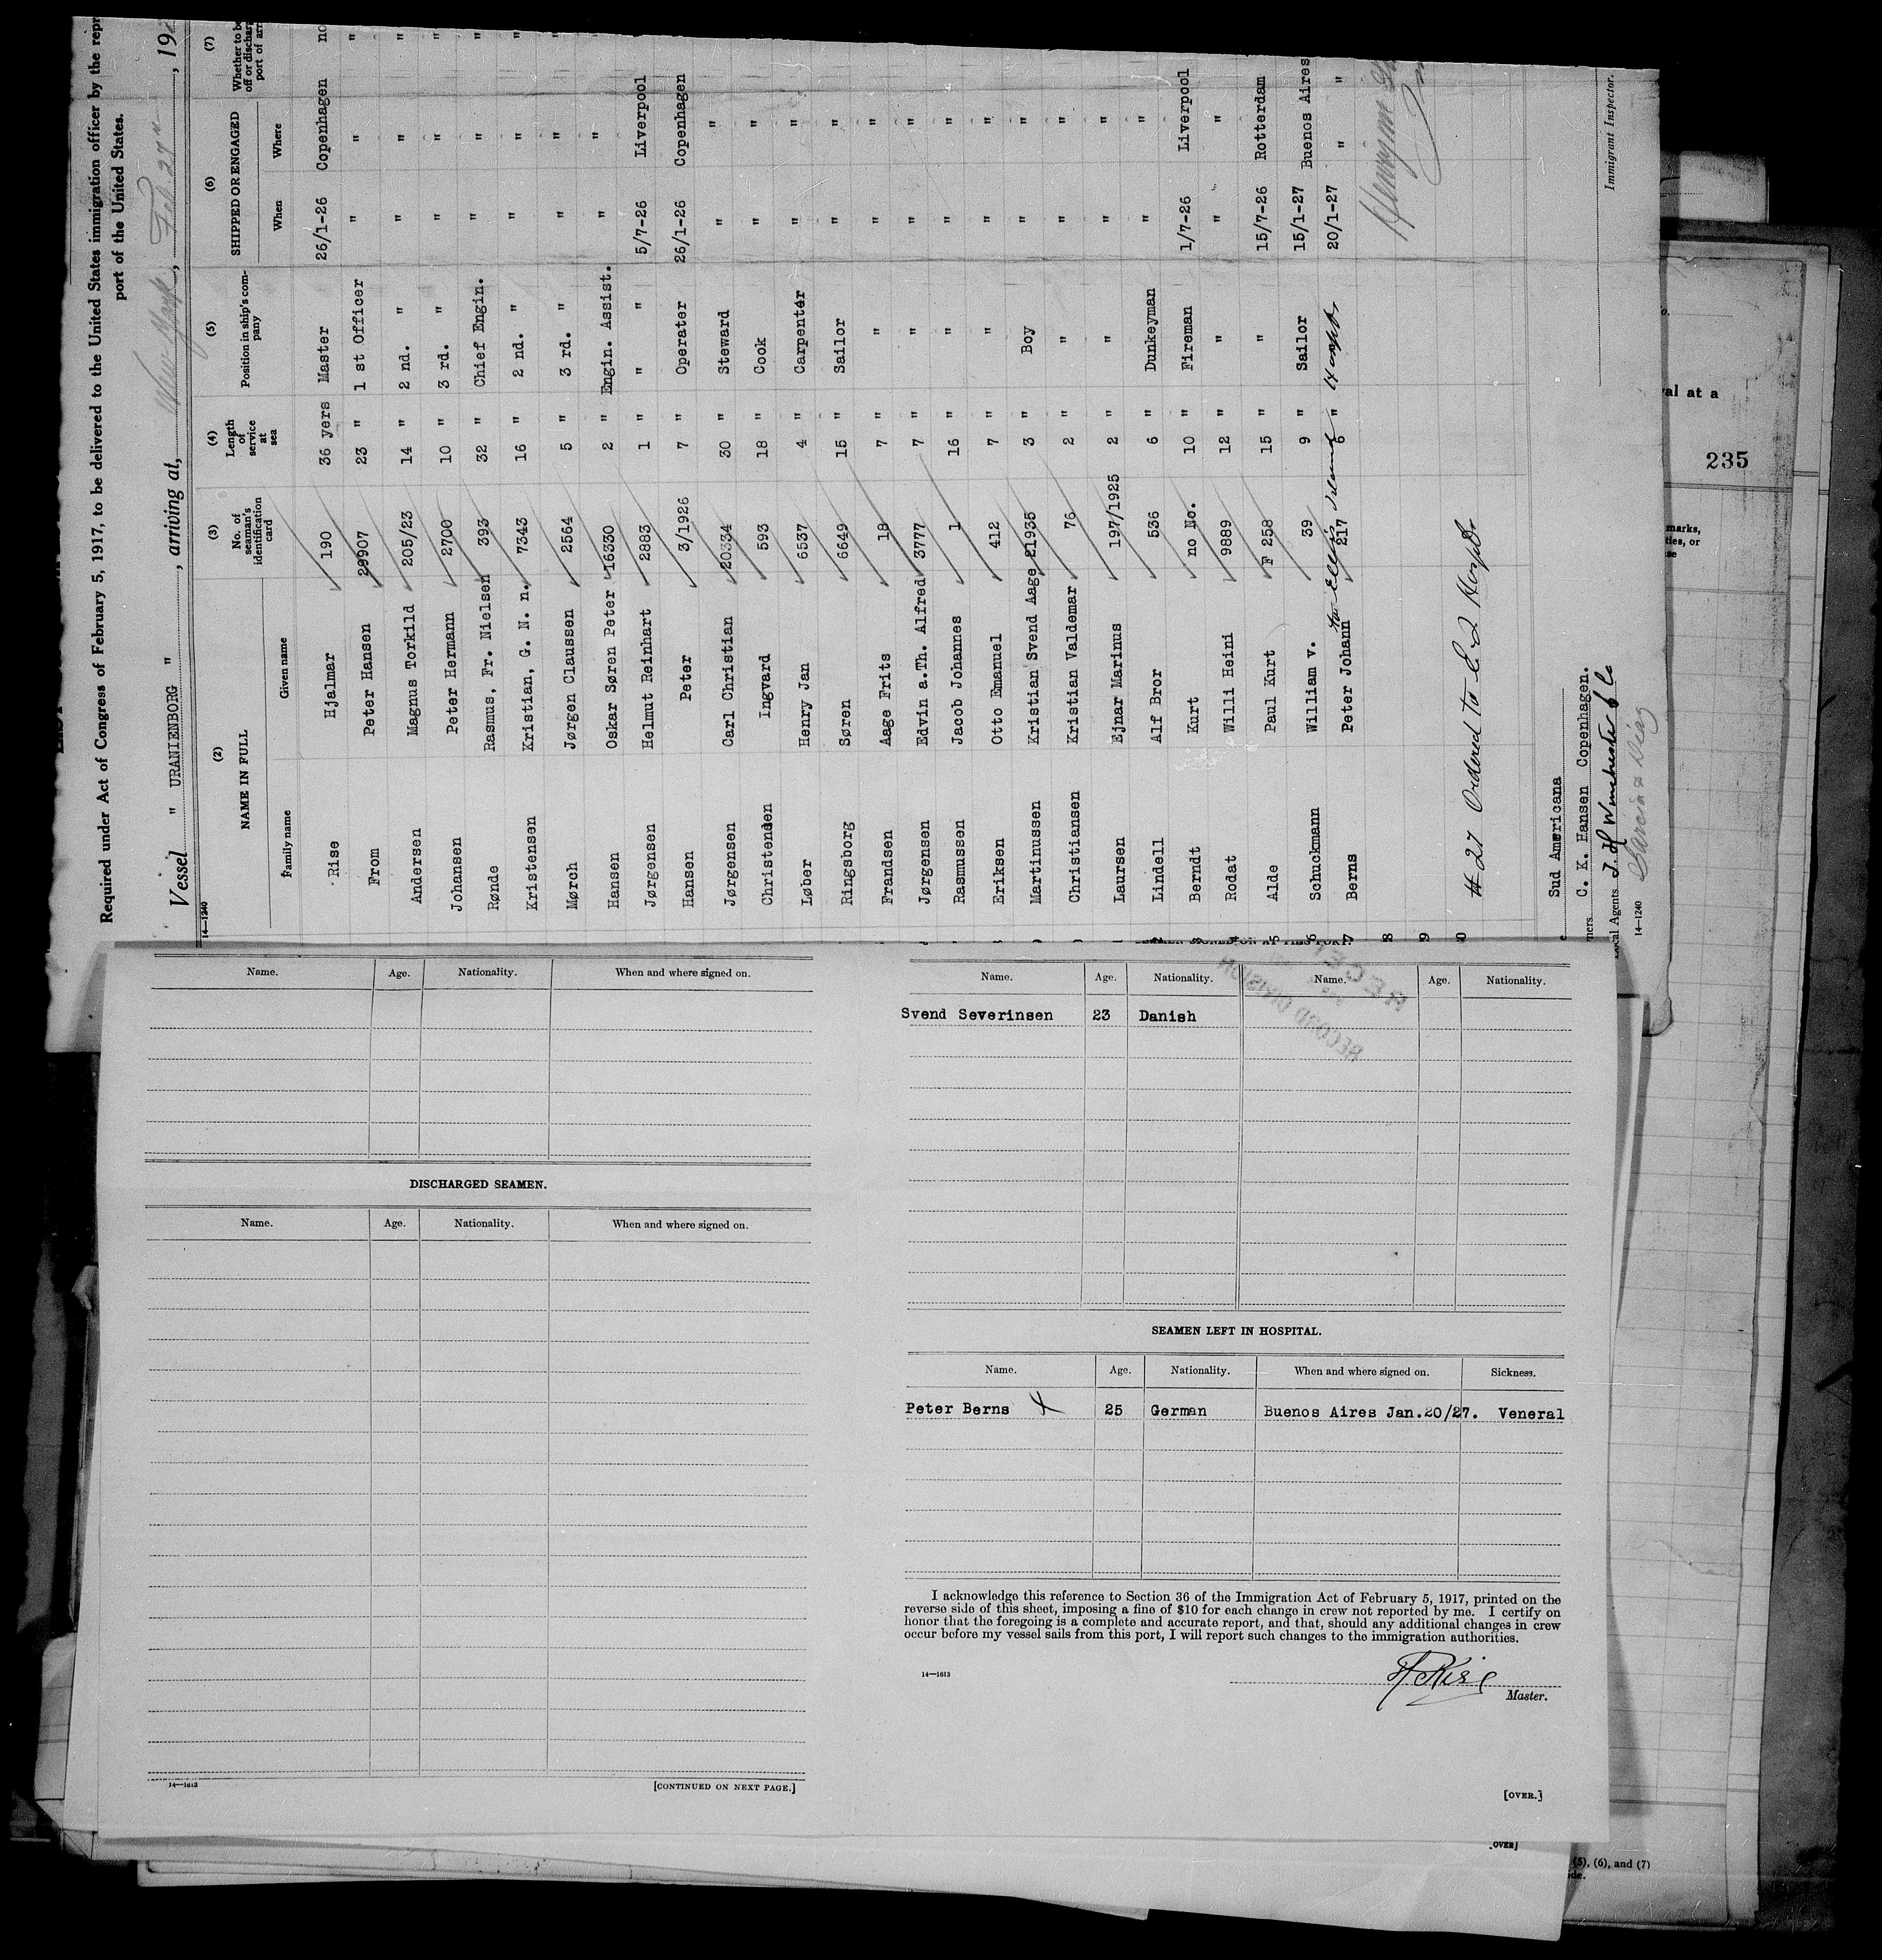 Required under Act of Congress of February 5, 1917, to be delivered to the United States immigration officer by the repr
port of the United States.
Vessel " URANIENBORG ", arriving at, New York, Feb. 27, 192
14—1240
(2) (3) (4) (5) (6) (7)
NAME IN FULL No. of seaman's identification card Length of service at sea Position in ship's company SHIPPED OR ENGAGED Whether to be off or discharg port of arr
Family name Given name When Where
Rise Hjalmar 190 36 yers Master 26/1-26 Copenhagen no
From Peter Hansen 29907 23 " 1 st Officer " " "
Andersen Magnus Torkild 205/23 14 " 2 nd. " " " "
Johansen Peter Hermann 2700 10 " 3 rd. " " " "
Rønde Rasmus, Fr. Nielsen 393 32 " Chief Engin. " " "
Kristensen Kristian, G. N. n. 7343 16 " 2 nd. " " " "
Mørch Jørgen Claussen 2564 5 " 3 rd. " " " "
Hansen Oskar Søren Peter 16330 2 " Engin. Assist. " "
Jørgensen Helmut Reinhart 2883 1 " " " 5/7-26 Liverpool
Hansen Peter 3/1926 7 " Operater 26/1-26 Copenhagen
Jørgensen Carl Christian 20334 30 " Steward " "
Christensen Ingvard 593 18 " Cook " "
Løber Henry Jan 6537 4 " Carpenter " "
Ringsborg Søren 6649 15 " Sailor " "
Frandsen Aage Frits 18 7 " " " "
Jørgensen Edvin a.Th. Alfred 3777 7 " " " "
Rasmussen Jacob Johannes 1 16 " " " "
Eriksen Otto Emanuel 412 7 " " " "
Martinussen Kristian Svend Aage 21935 3 " Boy " "
Christiansen Kristian Valdemar 76 2 " " " "
Laursen Ejnar Marinus 197/1925 2 " " " "
Lindell Alf Bror 536 6 " Dunkeyman " "
Berndt Kurt no No. 10 " Fireman 1/7-26 Liverpool
Rodat Willi Heini 9889 12 " " " "
Alde Paul Kurt F 258 15 " " 15/7-26 Rotterdam
Schuckmann William v. 39 9 " Sailor 15/1-27 Buenos Aires
Berns Peter Johann 217 6 " 20/1-27 " "
to Ellis Island Hospt.
# 27 Ordered to E. I Hospt.
Sud Americana
ners C. K. Hansen Copenhagen.
Local Agents J. H Winchester & Co
Garcia & Diaz
14—1240
Immigrant Inspector.
val at a
235
marks,
ties, or
se
Name. Age. Nationality. When and where signed on.
DISCHARGED SEAMEN.
Name. Age. Nationality. When and where signed on.
14—1613
[CONTINUED ON NEXT PAGE.]
Name. Age. Nationality. Name. Age. Nationality.
RECORD DIVISION
Svend Severinsen 23 Danish
SEAMEN LEFT IN HOSPITAL.
Name. Age. Nationality. When and where signed on. Sickness.
Peter Berns X 25 German Buenos Aires Jan.20/27. Veneral
I acknowledge this reference to Section 36 of the Immigration Act of February 5, 1917, printed on the
reverse side of this sheet, imposing a fine of $10 for each change in crew not reported by me. I certify on
honor that the foregoing is a complete and accurate report, and that, should any additional changes in crew
occur before my vessel sails from this port, I will report such changes to the immigration authorities.
14—1613
H Rise
Master.
[OVER.]
OVER]
(5), (6), and (7)